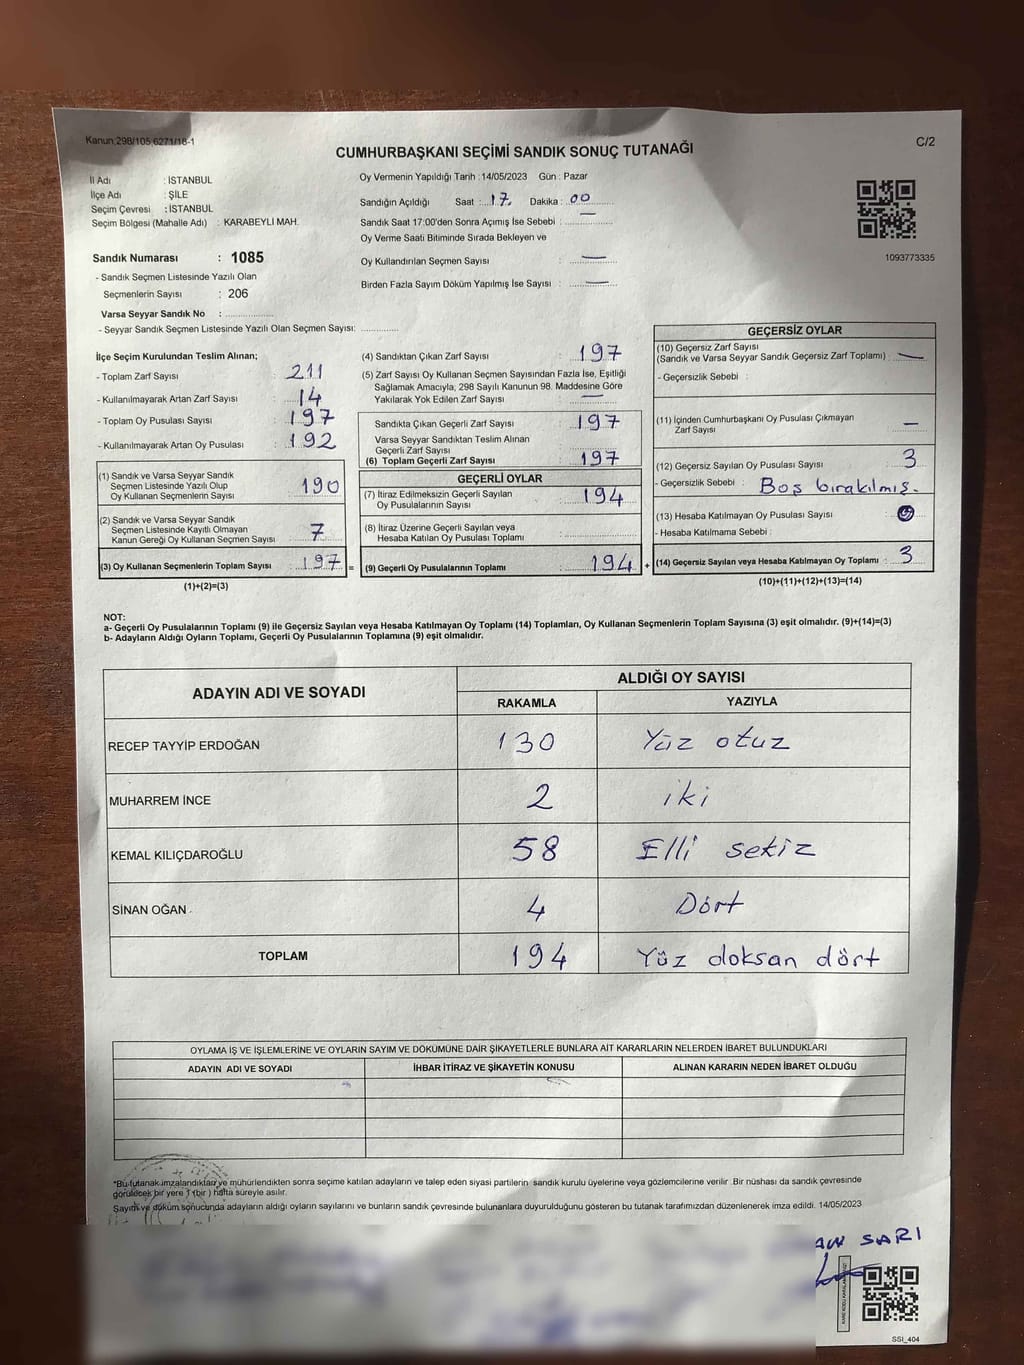 Kanun;298/105-6271/18-1
C/2
CUMHURBAŞKANI SEÇİMİ SANDIK SONUÇ TUTANAĞI
İl Adı : İSTANBUL
İlçe Adı : ŞİLE
Seçim Çevresi : İSTANBUL
Seçim Bölgesi (Mahalle Adı) : KARABEYLİ MAH.
Oy Vermenin Yapıldığı Tarih : 14/05/2023 Gün : Pazar
Sandığın Açıldığı Saat : 17 Dakika : 00
Sandık Saat 17:00'den Sonra Açımış İse Sebebi : —
Oy Verme Saati Bitiminde Sırada Bekleyen ve
Oy Kullandırılan Seçmen Sayısı : —
Birden Fazla Sayım Döküm Yapılmış İse Sayısı : —
1093773335
Sandık Numarası : 1085
- Sandık Seçmen Listesinde Yazılı Olan
Seçmenlerin Sayısı : 206
Varsa Seyyar Sandık No :
- Seyyar Sandık Seçmen Listesinde Yazılı Olan Seçmen Sayısı:
İlçe Seçim Kurulundan Teslim Alınan;
- Toplam Zarf Sayısı : 211
- Kullanılmayarak Artan Zarf Sayısı : 14
- Toplam Oy Pusulası Sayısı : 197
- Kullanılmayarak Artan Oy Pusulası : 192
(1) Sandık ve Varsa Seyyar Sandık
Seçmen Listesinde Yazılı Olup
Oy Kullanan Seçmenlerin Sayısı : 190
(2) Sandık ve Varsa Seyyar Sandık
Seçmen Listesinde Kayıtlı Olmayan
Kanun Gereği Oy Kullanan Seçmen Sayısı : 7
(3) Oy Kullanan Seçmenlerin Toplam Sayısı : 197 =
(1)+(2)=(3)
(4) Sandıktan Çıkan Zarf Sayısı : 197
(5) Zarf Sayısı Oy Kullanan Seçmen Sayısından Fazla İse, Eşitliği
Sağlamak Amacıyla, 298 Sayılı Kanunun 98. Maddesine Göre
Yakılarak Yok Edilen Zarf Sayısı : —
Sandıkta Çıkan Geçerli Zarf Sayısı : 197
Varsa Seyyar Sandıktan Teslim Alınan
Geçerli Zarf Sayısı :
(6) Toplam Geçerli Zarf Sayısı : 197
GEÇERLİ OYLAR
(7) İtiraz Edilmeksizin Geçerli Sayılan
Oy Pusulalarının Sayısı : 194
(8) İtiraz Üzerine Geçerli Sayılan veya
Hesaba Katılan Oy Pusulası Toplamı :
(9) Geçerli Oy Pusulalarının Toplamı : 194 +
GEÇERSİZ OYLAR
(10) Geçersiz Zarf Sayısı
(Sandık ve Varsa Seyyar Sandık Geçersiz Zarf Toplamı) : —
- Geçersizlik Sebebi :
(11) İçinden Cumhurbaşkanı Oy Pusulası Çıkmayan
Zarf Sayısı : —
(12) Geçersiz Sayılan Oy Pusulası Sayısı : 3
- Geçersizlik Sebebi : Boş bırakılmış.
(13) Hesaba Katılmayan Oy Pusulası Sayısı :
- Hesaba Katılmama Sebebi :
(14) Geçersiz Sayılan veya Hesaba Katılmayan Oy Toplamı : 3
(10)+(11)+(12)+(13)=(14)
NOT:
a- Geçerli Oy Pusulalarının Toplamı (9) ile Geçersiz Sayılan veya Hesaba Katılmayan Oy Toplamı (14) Toplamları, Oy Kullanan Seçmenlerin Toplam Sayısına (3) eşit olmalıdır. (9)+(14)=(3)
b- Adayların Aldığı Oyların Toplamı, Geçerli Oy Pusulalarının Toplamına (9) eşit olmalıdır.
ADAYIN ADI VE SOYADI
ALDIĞI OY SAYISI
RAKAMLA YAZIYLA
RECEP TAYYİP ERDOĞAN 130 Yüz otuz
MUHARREM İNCE 2 iki
KEMAL KILIÇDAROĞLU 58 Elli sekiz
SİNAN OĞAN 4 Dört
TOPLAM 194 Yüz doksan dört
OYLAMA İŞ VE İŞLEMLERİNE VE OYLARIN SAYIM VE DÖKÜMÜNE DAİR ŞİKAYETLERLE BUNLARA AİT KARARLARIN NELERDEN İBARET BULUNDUKLARI
ADAYIN ADI VE SOYADI İHBAR İTİRAZ VE ŞİKAYETİN KONUSU ALINAN KARARIN NEDEN İBARET OLDUĞU
*Bu tutanak imzalandıktan ve mühürlendikten sonra seçime katılan adayların ve talep eden siyasi partilerin sandık kurulu üyelerine veya gözlemcilerine verilir .Bir nüshası da sandık çevresinde
görülecek bir yere 1 (bir ) hafta süreyle asılır.
Sayım ve döküm sonucunda adayların aldığı oyların sayılarını ve bunların sandık çevresinde bulunanlara duyurulduğunu gösteren bu tutanak tarafımızdan düzenlenerek imza edildi. 14/05/2023
SARI
SSI_404